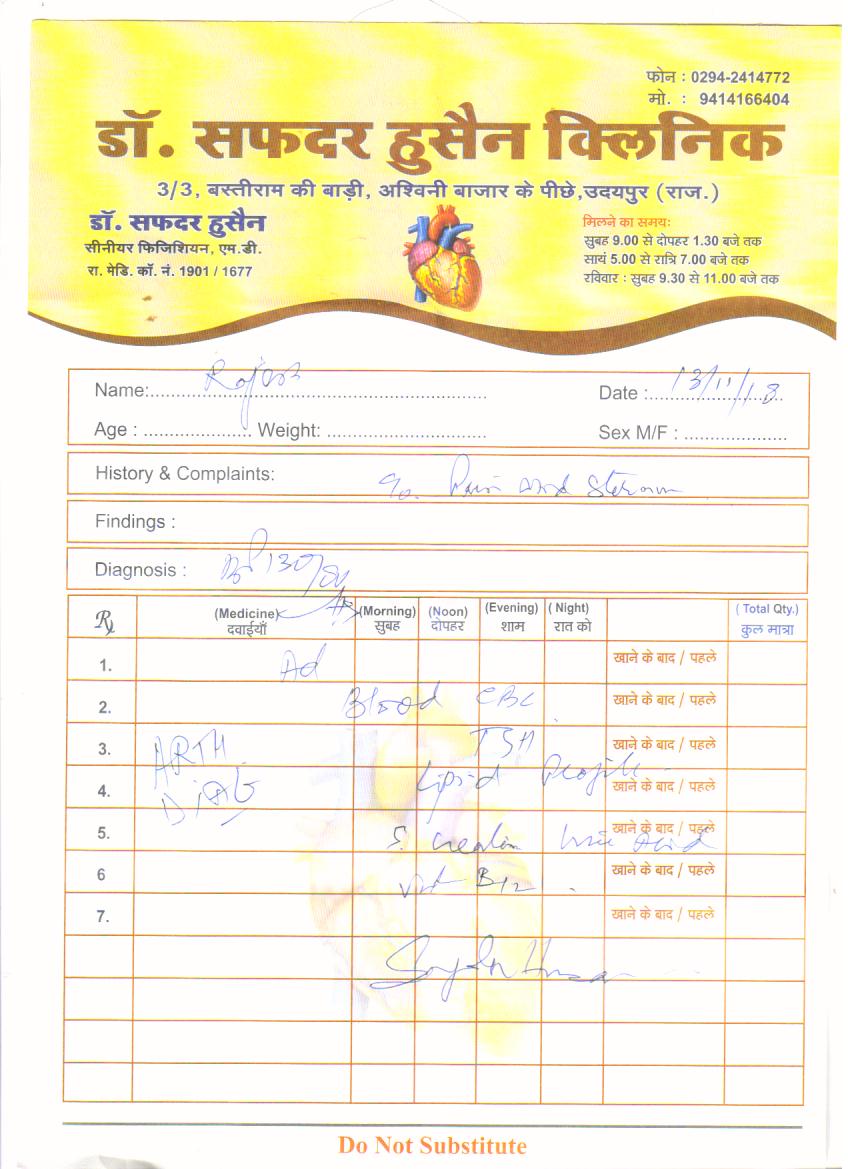 फोन : 0294-2414772
मो. : 9414166404
डॉ. सफदर हुसैन क्लिनिक
3/3, बस्तीराम की बाड़ी, अश्विनी बाजार के पीछे,उदयपुर (राज.)
डॉ. सफदर हुसैन
सीनीयर फिजिशियन, एम.डी.
रा. मेडि. कॉ. नं. 1901 / 1677
मिलने का समय:
सुबह 9.00 से दोपहर 1.30 बजे तक
सायं 5.00 से रात्रि 7.00 बजे तक
रविवार : सुबह 9.30 से 11.00 बजे तक
Name:
Date : 13/11/18
Age : Weight: Sex M/F :
History & Complaints: Pain and
Findings :
Diagnosis : 130/
(Medicine) (Morning) (Noon) (Evening) (Night) (Total Qty.)
दवाईयाँ सुबह दोपहर शाम रात को कुल मात्रा
1. Ad खाने के बाद / पहले
2. Blood CBC खाने के बाद / पहले
3. ARTH TSH खाने के बाद / पहले
4. DIAB Lipid Profile खाने के बाद / पहले
5. S. Creatin Uric Acid खाने के बाद / पहले
6 Vit B12 खाने के बाद / पहले
7. खाने के बाद / पहले
Do Not Substitute